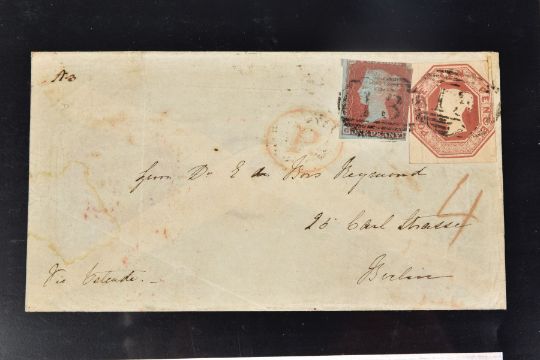 No 3
ONE PENNY
PENCE
P
Herrn Dr E du Bois Reymond
25 Carl Strasse
4
Via Ostende.
Berlin